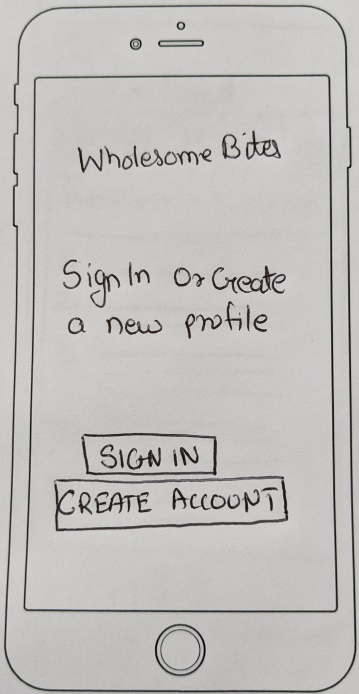 Wholesome Bites
Sign In Or Create
a new profile
SIGN IN
CREATE ACCOUNT